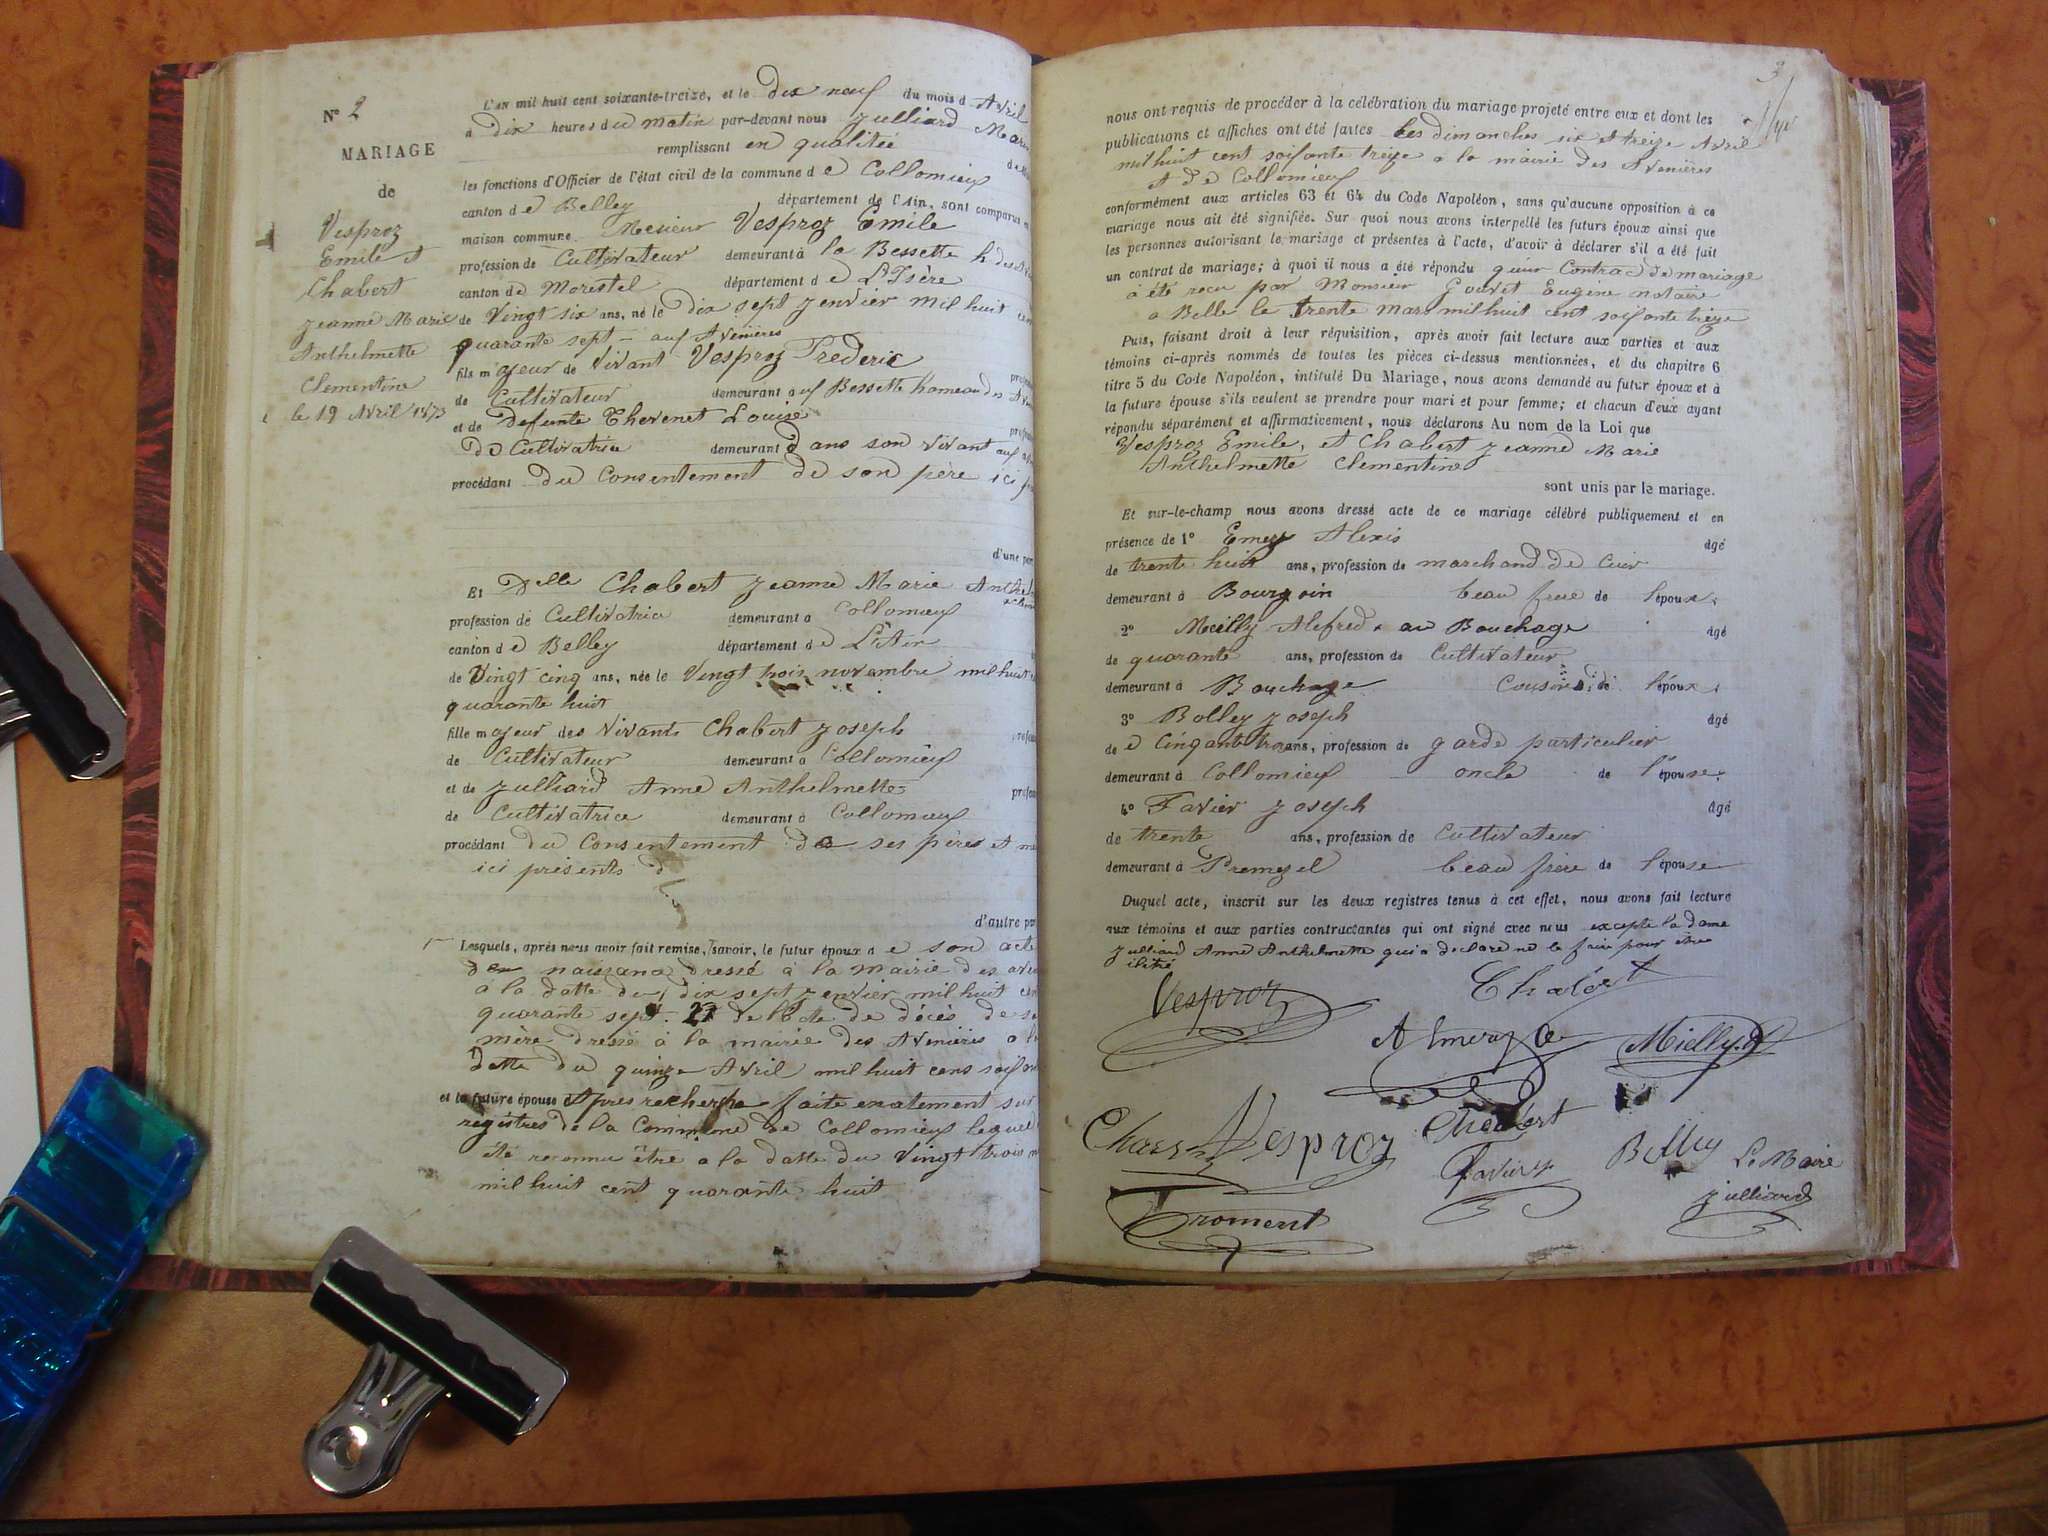 Nº 2
MARIAGE
de
Vesproz
Emile et
Chabert
Jeanne Marie
Anthelmette
Clementine
le 19 Avril 1873
L'AN mil huit cent soixante-treize, et le dix neuf du mois d'Avril
à dix heures du matin par-devant nous Julliard
remplissant en qualitée
les fonctions d'Officier de l'état civil de la commune de Collomieu
canton de Belley département de l'Ain, sont comparus
maison commune Mesieur Vesproz Emile
profession de Cultivateur demeurant à la Bessette h des
canton de Morestel département de L'Isère
de Vingt six ans, né le dix sept Jenvier mil huit cen
quarante sept - aux Avenières
fils majeur de Vivant Vesproz Frederic
de Cultivateur demeurant aux Bessette hameau des
et de defunte Thevenet Louise
De Cultivatrice demeurant dans son vivant aux
procédant du Consentement de son père ici
d'une par
Et Delle Chabert Jeanne Marie Anthel
profession de Cultivatrice demeurant à Collomieux
canton de Belley département de L'Ain
de Vingt cinq ans, née le Vingt trois novembre mil huit
quarante huit
fille majeur des Vivants Chabert Joseph
de Cultivateur demeurant à Collomieux
et de Julliard Anne Anthelmette
de Cultivatrice demeurant à Collomieux
procédant du Consentement de ses pères et
ici présents
d'autre par
Lesquels, après nous avoir fait remise, savoir, le futur époux de son acte
de naissance dressé à la mairie des
à la datte du dix sept Jenvier mil huit cen
quarante sept. 2º de l'acte de décès de sa
mère dressé à la mairie des Avenières a la
datte du quinze Avril mil huit cens
et la future épouse Apres recherche faite exatement sur
registres de la Commune de Collomieux lequel
été reconnu être a la datte du Vingt trois
mil huit cent quarante huit
3
nous ont requis de procéder à la célébration du mariage projeté entre eux et dont les
publications et affiches ont été faites les dimanches six et treize Avril
mil huit cent soixante treize a la mairie des Avenières
et de Collomieux
conformément aux articles 63 et 64 du Code Napoléon, sans qu'aucune opposition à ce
mariage nous ait été signifiée. Sur quoi nous avons interpellé les futurs époux ainsi que
les personnes autorisant le mariage et présentes à l'acte, d'avoir à déclarer s'il a été fait
un contrat de mariage; à quoi il nous a été répondu qu'un Contrac de mariage
à été recu par Monsieur Gouvet Eugène notaire
a Belle le trente mars mil huit cent soixante treize
Puis, faisant droit à leur réquisition, après avoir fait lecture aux parties et aux
témoins ci-après nommés de toutes les pièces ci-dessus mentionnées, et du chapitre 6
titre 5 du Code Napoléon, intitulé Du Mariage, nous avons demandé au futur époux et à
la future épouse s'ils veulent se prendre pour mari et pour femme; et chacun d'eux ayant
répondu séparément et affirmativement, nous déclarons Au nom de la Loi que
Vesproz Emile, et Chabert Jeanne Marie
Anthelmette Clementine
sont unis par le mariage.
Et sur-le-champ nous avons dressé acte de ce mariage célébré publiquement et en
présence de 1º Emery Alexis âgé
de trente huit ans, profession de marchand de Cuir
demeurant à Bourgoin beau frere de l'épouse.
2º Meilly Alefred au Bouchage âgé
de quarante ans, profession de Cultivateur
demeurant à Bouchage Cousin de l'époux.
3º Bolley Joseph âgé
de Cinqante trois ans, profession de garde particulier
demeurant à Collomieux oncle de l'épouse.
4º Favier Joseph âgé
de trente ans, profession de Cultivateur
demeurant à Premeyzel beau frere de l'épouse
Duquel acte, inscrit sur les deux registres tenus à cet effet, nous avons fait lecture
aux témoins et aux parties contractantes qui ont signé avec nous excepte la dame
Julliard Anne Anthelmette qui a declaré ne le faire pour être
ilitré
Vesproz
Chabert
Mielly
Vesproz
Chabert
Favier
Bolley
Le Maire
Julliard
Froment